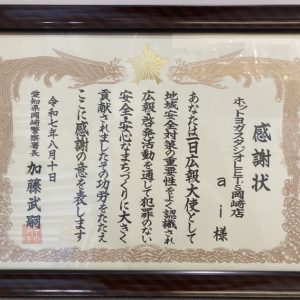 感謝状
ホットヨガスタジオLET'S岡崎店
ai 様
あなたは一日広報大使として
地域安全対策の重要性をよく認識され
広報啓発活動を通して犯罪のない
安全で安心なまちづくりに大きく
貢献されましたその功労をたたえ
ここに感謝の意を表します
令和七年八月十日
愛知県岡崎警察署長 加藤武嗣